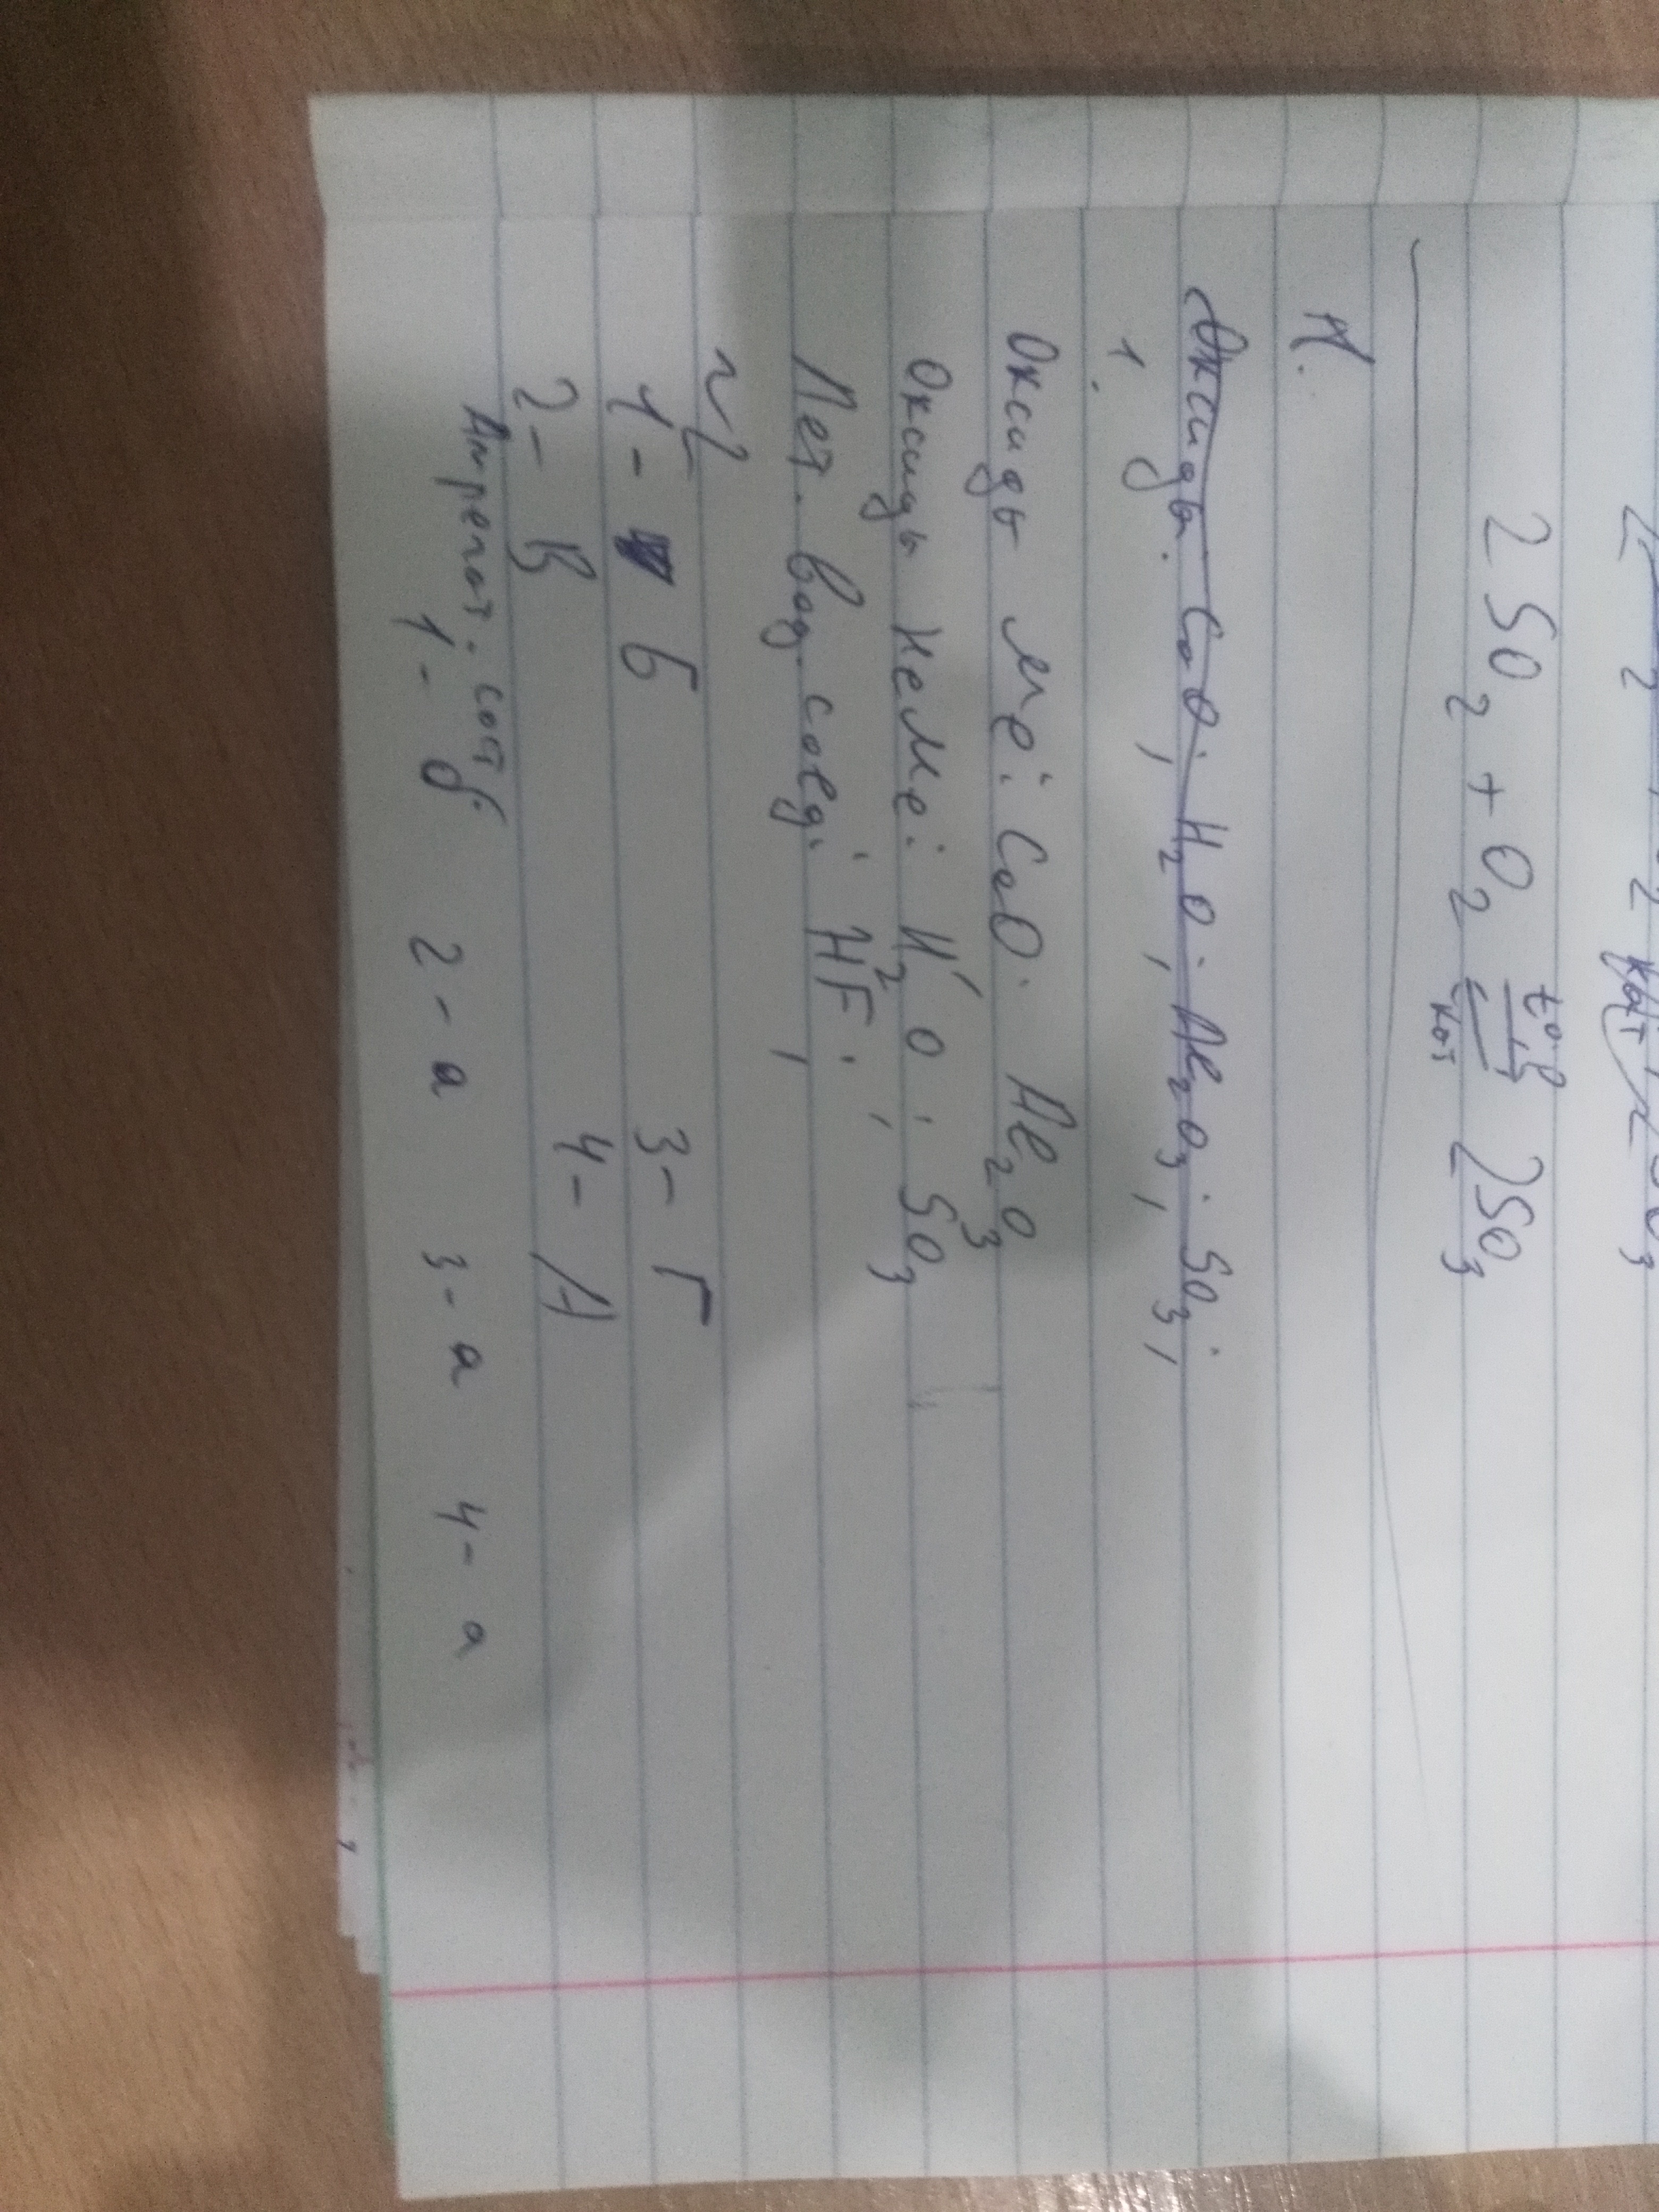 2 SO₂ + O₂ ⇄ 2SO₃
t°. p
кат
1.
Оксиды: CaO; H₂O; Al₂O₃; SO₃;
1.
Оксиды ме: CaO. Al₂O₃
Оксиды неме: H₂O; SO₃
Лет. вод. соед: HF;
№2
1- Б 3- Г
2- В 4- А
Агрегат. сост
1- б 2- а 3- а 4- а